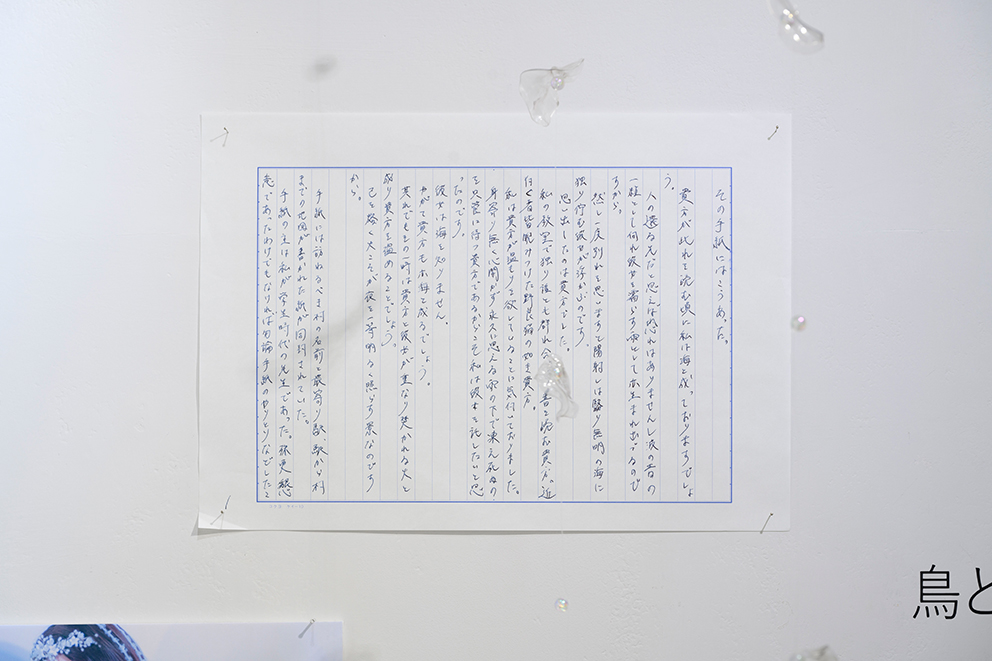 その手紙にはこうあった。
貴方が此れを読む頃に私は海と成っておりますでしょ
う。
人の還る先だと思えば恐れはありませんし波の音の
一粒とし何れ彼女を濡らす雨として亦生まれ出づるので
すから。
然し一度別れを思いますと陽射しは翳り無明の海に
独り佇む彼女が浮かぶのです。
思い出したのは貴方でした。
私の教室で独り
書を読む貴方。近
付く者皆睨みつけた野良猫の如き貴方。
私は貴方が温もりを欲していることに気付いておりました。
身寄り無く心開かず永久に思える雨の下で凍え死ぬの
を只管に待つ貴方であるからこそ私は彼女を託したいと思
ったのです。
彼女は海を知りません。
やがて貴方も亦海と成るでしょう。
其れでもその一時は貴方と彼女が重なり焚かれる火と
成り貴方を温めることでしょう。
己を焼く火こそが夜を一等明るく照らす寮なのです
から。
手紙には訪ねるべき村の名前と最寄り駅、駅から村
までの地図が書かれた紙が同封されていた。
手紙の主は私が学生時代の先生であった。
恋であったわけでもなければ勿論手紙のやりとりなどしたこ
鳥と